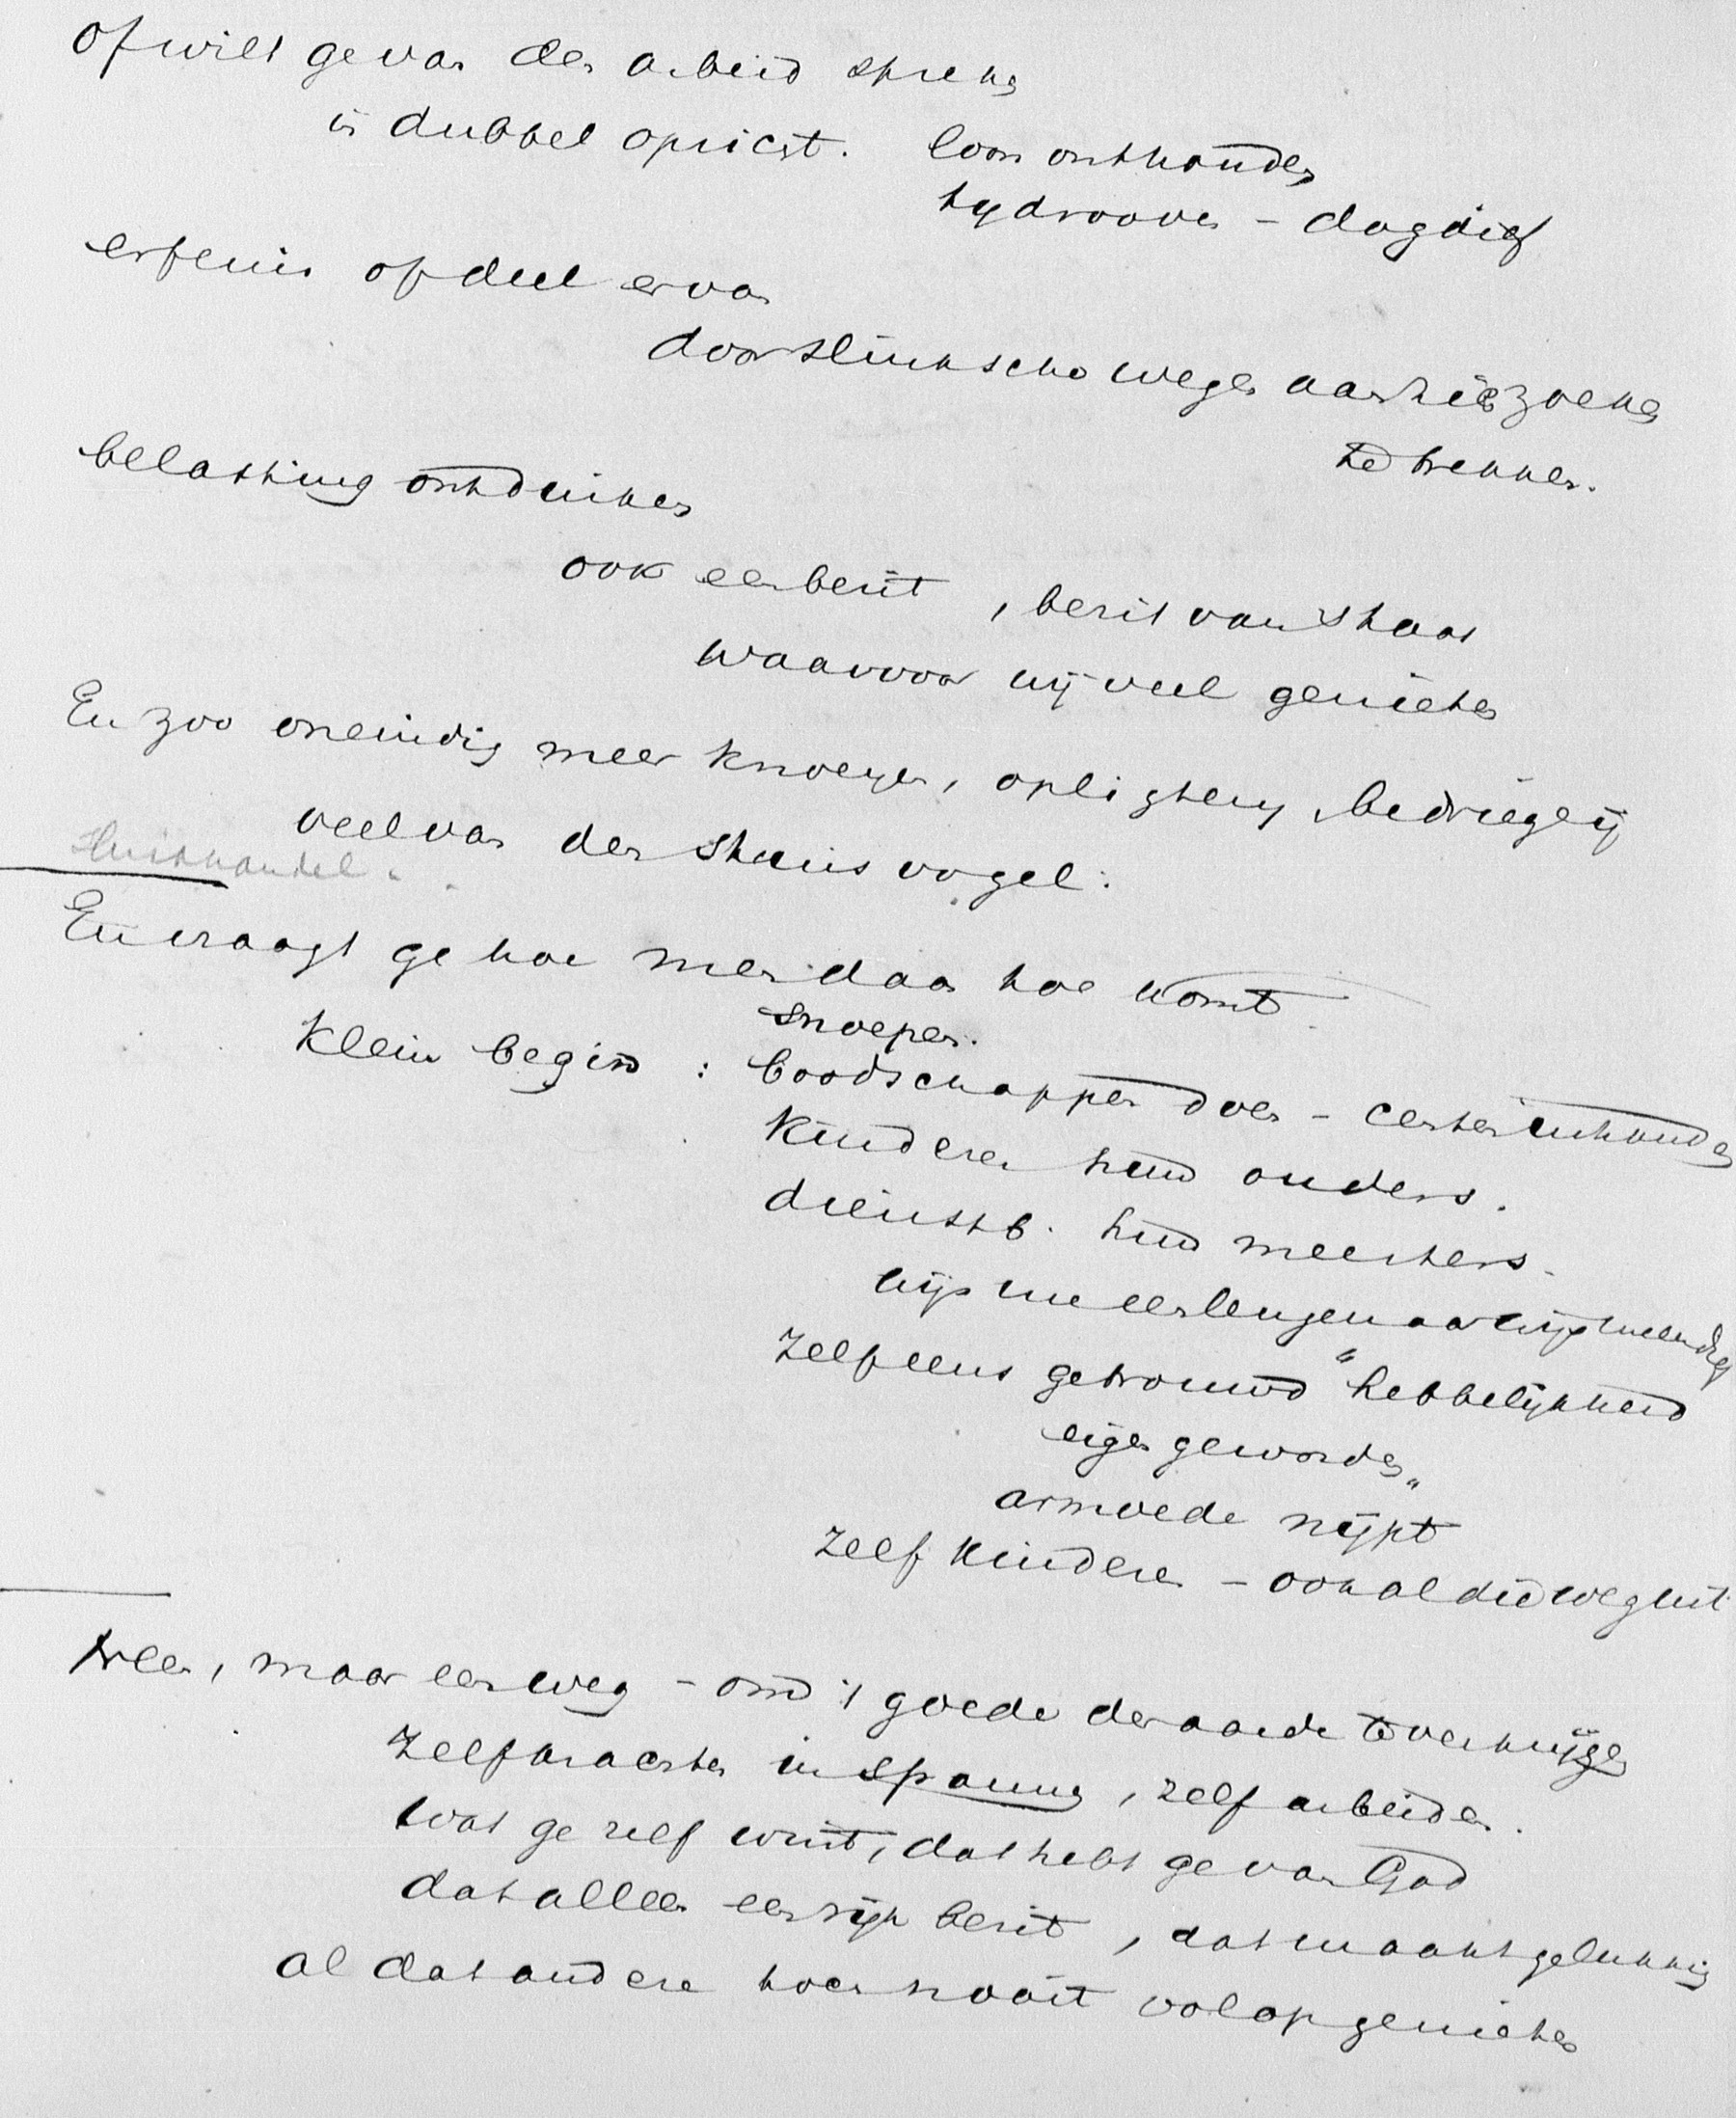 Of wilt ge van den arbeid spreken
in dubbel opzicht. loon onthouden
tydroover - dagdief
erfenis of deel ervan
door slinksche wegen aan zich zoeken
te trekken.
belasting ontduiken
ook een bezit, bezit van staat
waarvoor wij veel genieten
En zoo oneindig meer knoeyen, oplightery, bedriegerij
veel van den struisvogel.
Sluikhandel.
En vraagt ge hoe men daar toe komt
snoepen.
Klein begin : boodschappen doen - centen inhouden
Kinderen hun ouders.
dienstb. hun meesters.
wijs me een leugenaar wijs me een dief
Zelf eens getrouwd "hebbelijkheid
eigen geworden"
armoede nijpt
Zelf kinderen - ook al die weg uit
Neen, maar een weg - om 't goede der aarde te verkrijgen
Zelf krachten inspannen, zelf arbeiden.
Wat ge zelf wint, dat hebt ge van God
dat alleen een rijk bezit, dat maakt gelukkig
al dat andere toch nooit volop genieten